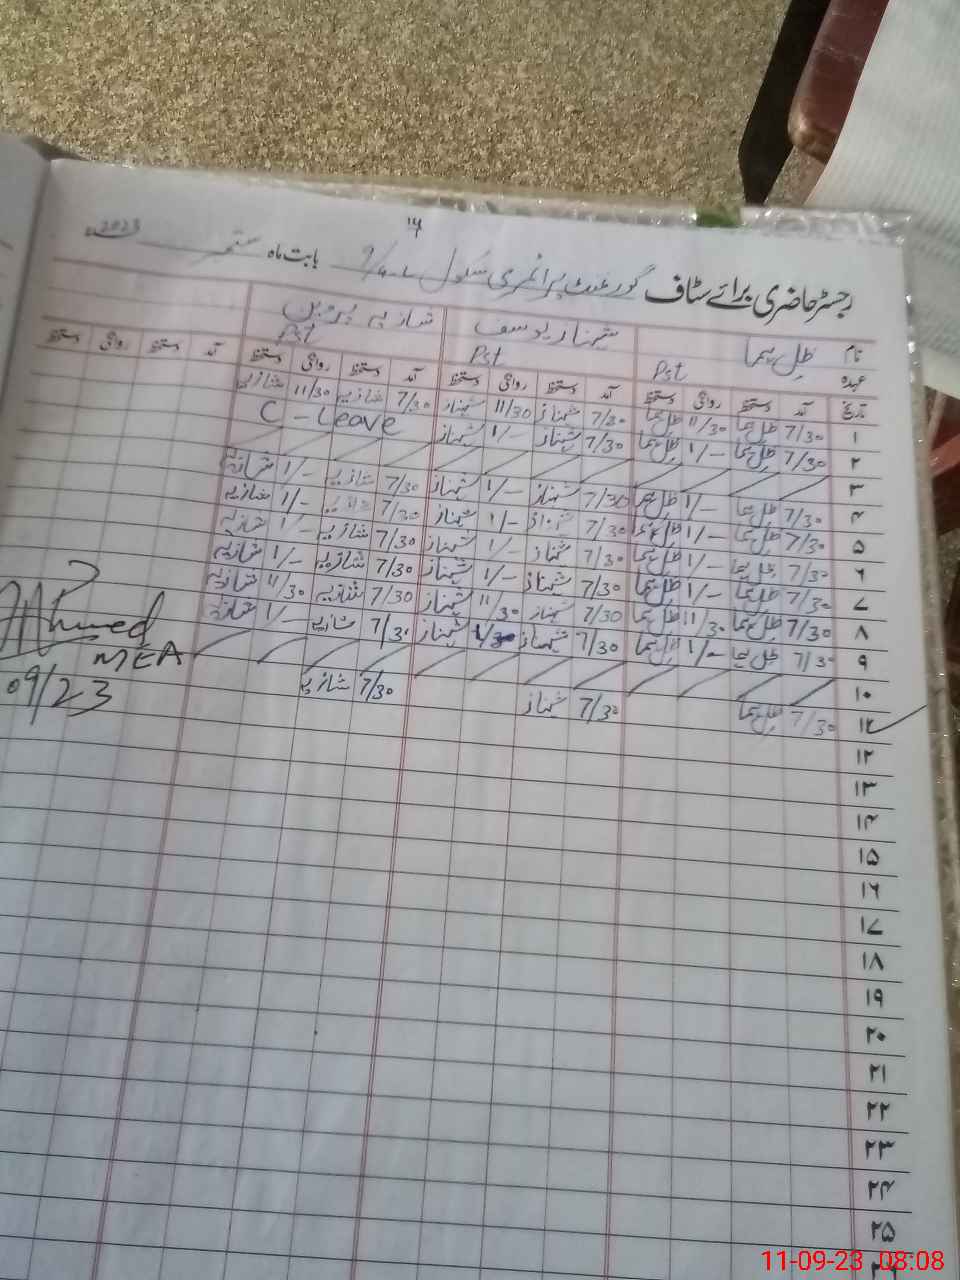 ۱۴
رجسٹر حاضری برائے سٹاف گورنمنٹ پرائمری سکول 9/4-L بابت ماہ ستمبر 2023ء
نام ظل ہما شہناز یوسف شازیہ پروین
عہدہ Pst Pst Pst
تاریخ آمد دستخط روانگی دستخط آمد دستخط روانگی دستخط آمد دستخط روانگی دستخط آمد دستخط روانگی دستخط
۱ 7/30 ظل ہما 11/30 ظل ہما 7/30 شہناز 11/30 شہناز 7/30 شازیہ 11/30 شازیہ
۲ 7/30 ظل ہما 1/- ظل ہما 7/30 شہناز 1/- شہناز C - Leave
۳
۴ 7/30 ظل ہما 1/- ظل ہما 7/30 شہناز 1/- شہناز 7/30 شازیہ 1/- شازیہ
۵ 7/30 ظل ہما 1/- ظل ہما 7/30 شہناز 1/- شہناز 7/30 شازیہ 1/- شازیہ
۶ 7/30 ظل ہما 1/- ظل ہما 7/30 شہناز 1/- شہناز 7/30 شازیہ 1/- شازیہ
۷ 7/30 ظل ہما 1/- ظل ہما 7/30 شہناز 1/- شہناز 7/30 شازیہ 1/- شازیہ
۸ 7/30 ظل ہما 11/30 ظل ہما 7/30 شہناز 11/30 شہناز 7/30 شازیہ 11/30 شازیہ
۹ 7/30 ظل ہما 1/- ظل ہما 7/30 شہناز شہناز 7/30 شازیہ 1/- شازیہ
۱۰
7/30 ظل ہما 7/30 شہناز 7/30 شازیہ
۱۲
۱۳
۱۴
۱۵
۱۶
۱۷
۱۸
۱۹
۲۰
۲۱
۲۲
۲۳
۲۴
۲۵
Ahmed
MEA
09/23
11-09-23 08:08